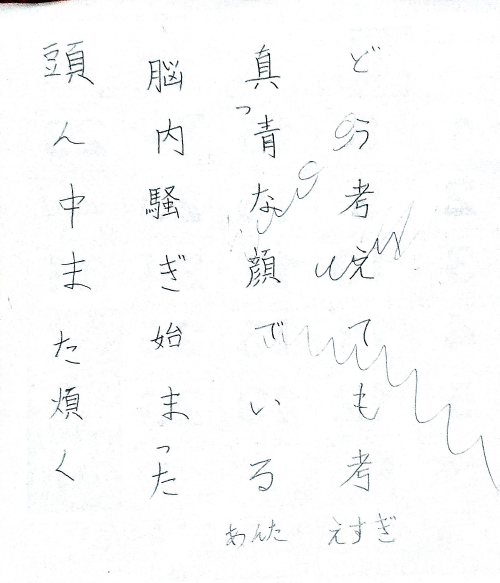 どう考えても考えすぎ
真っ青な顔でいるあんた
脳内騒ぎ始まった
頭ん中また煩く